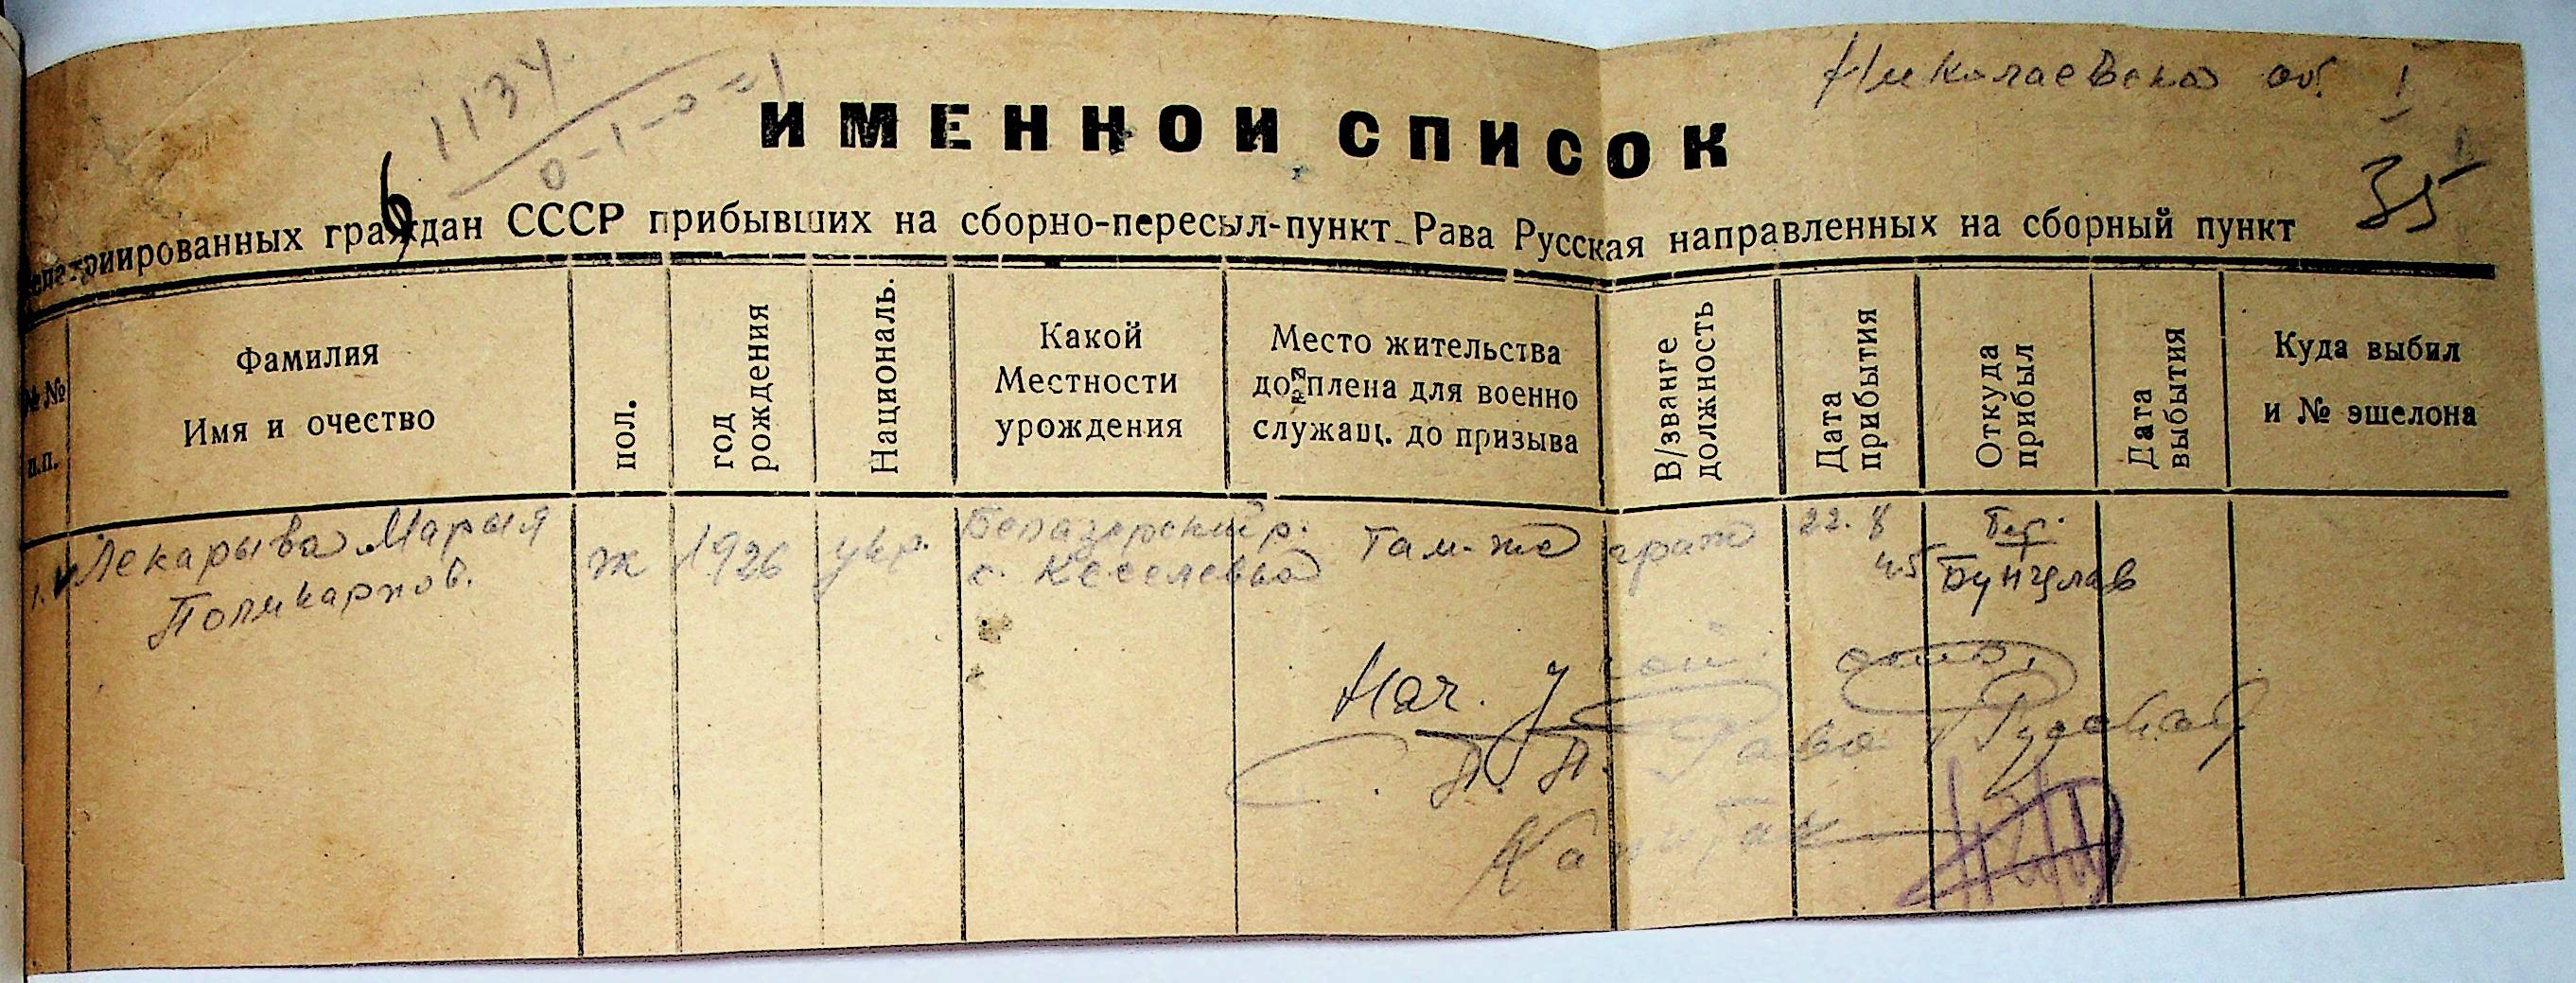 Николаевска об. 1
1134
0-1-0=1
ИМЕННОЙ СПИСОК
35
6
репатриированных граждан СССР прибывших на сборно-пересыл-пункт Рава Русская направленных на сборный пункт
№№
п.п.
Фамилия
Имя и очество
пол.
год
рождения
Националь.
Какой
Местности
урождения
Место жительства
до плена для военно
служащ. до призыва
В/званге
должность
Дата
прибытия
Откуда
прибыл
Дата
выбытия
Куда выбил
и № эшелона
1. Лекарыва Марыя
Поликарпов.
ж
1926
укр.
Белазерский р.
с. Кеселевка
Там-же
граж
22.8
45
Бунцлав
Нач.
С. П. П. Рава Русская
Капитан